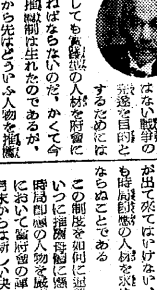 はない戰爭の
完遂を目的と
するためには
しても の人材を府當に
ねばならないのだ、かくて今
推薦制は生れたのであるが、
から先はどういふ人物を推薦
が出て來てはいけない、
も時局即應の人材を求
ならぬことである
この制度を如何に運
いつに推薦母體に懸
時局即應の人物を嚴
において
末からは新しい決